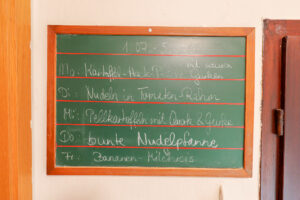 Mo: Kartoffel-Hack-Pfanne mit sauren Gurken
Di: Nudeln in Tomaten-Rahm
Mi: Pellkartoffeln mit Quark & Gurke
Do: bunte Nudelpfanne
Fr: Bananen-Milchreis